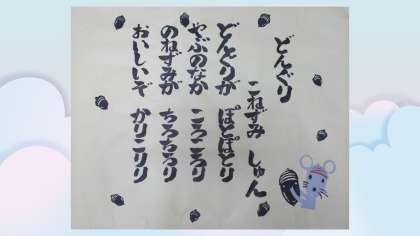 どんぐり
こねずみ しゅん
どんぐりが ぽとぽとり
やぶのなか ころころり
のねずみが ちろちろり
おいしいぞ かりこりり